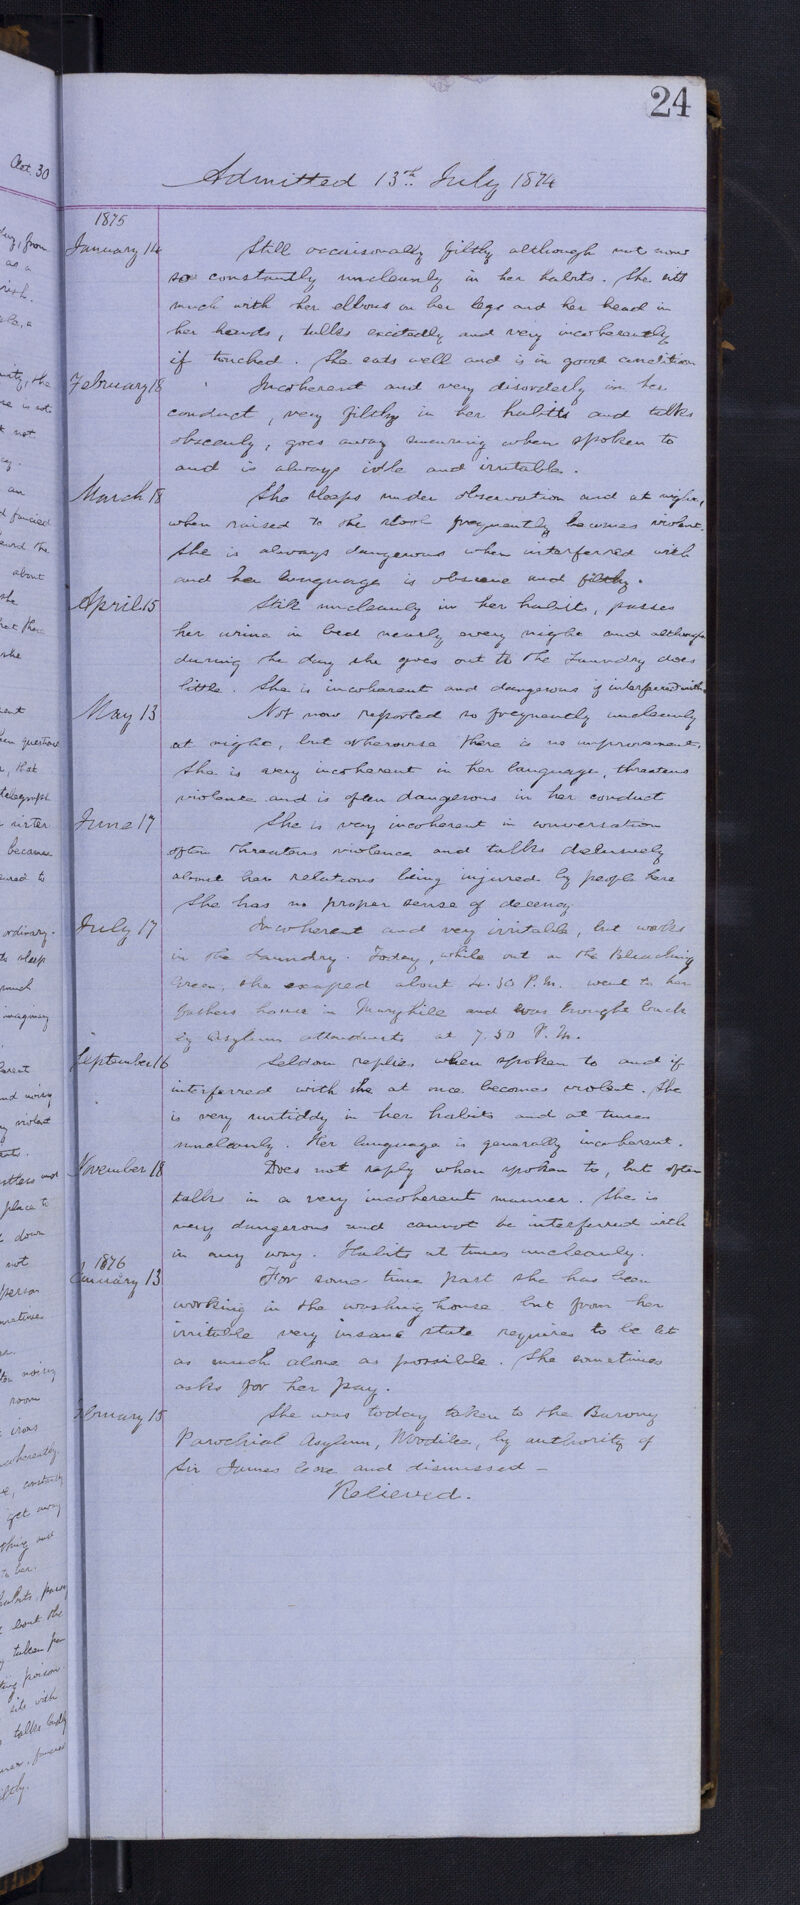 24
Admitted 13th July 1874
1875
January 14 Still occaisonally filthy although not now
so constantly uncleanly in her habits. She sits
much with her elbows on her legs and her head in
her hands, talks excitedly and very incoherently
if touched. She eats well and is in good condition
February 18 Incoherent and very disorderly in her
conduct, very filthy in her habits and talks
obscenly, goes away swearing when spoken to
and is always idle and irritable.
March 18 She sleeps under observation and at night,
when raised to the stool frequently becomes violent.
She is always dangerous when interferred with
and her language is obscene and filthy.
April 15 Still uncleanly in her habits, passes
her urine in bed nearly every night and although
during the day she goes out to the Laundry does
little. She is incoherent and dangerous if interferred with
May 13 Not now reported so frequently uncleanly
at night, but otherwise there is no improvement.
She is very incoherent in her language, threatens
violence and is often dangerous in her conduct
June 17 She is very incoherent in conversation
often threatens violence and talks delusively
about her relations being injured by people here
She has no proper sense of decency
July 17 Incoherent and very irritable, but works
in the Laundry. Today, while out on the Bleaching
Green, she escaped about 4.30 P.M. went to her
Fathers house in Maryhill and was brought back
by Asylum attendants at 7.30 P.M.
September 16 Seldom replies when spoken to and if
interferred with she at once becomes violent. She
is very untiddy in her habits and at times
uncleanly. Her language is generally incoherent.
November 18 Does not reply when spoken to, but often
talks in a very incoherent manner. She is
very dangerous and cannot be interferred with
in any way. Habits at times uncleanly.
1876
January 13 For some time past she has been
working in the washing house but from her
irritable very insane state requires to be let
as much alone as possible. She sometimes
asks for her pay.
February 15 She was today taken to the Barony
Parochial Asylum, Woodilee, by authority of
Sir James Coxe and dismissed –
Relieved.